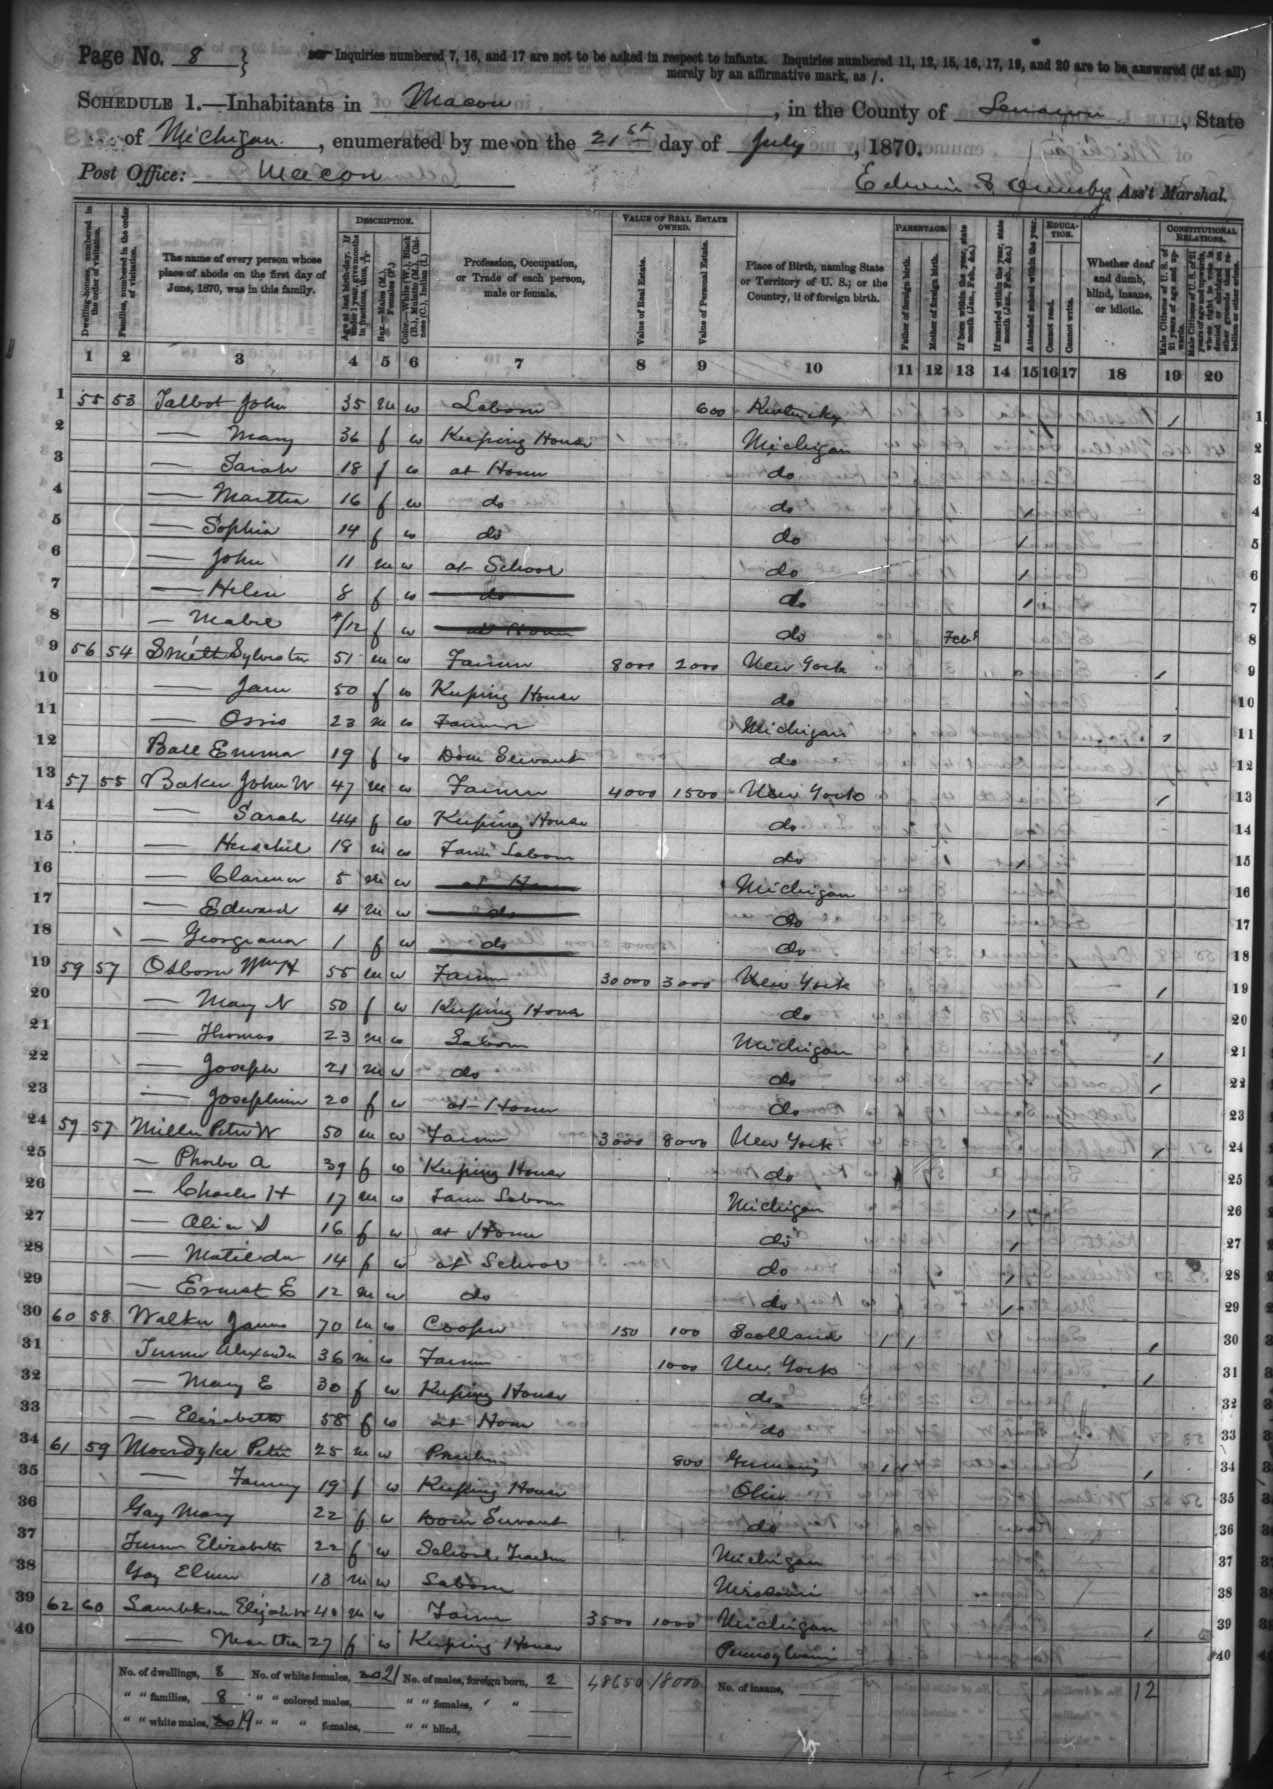 Page No. 8
Inquiries numbered 7, 16, and 17 are not to be asked in respect to infants. Inquiries numbered 11, 12, 15, 16, 17, 19, and 20 are to be answered (if at all)
merely by an affirmative mark, as /.
SCHEDULE 1.—Inhabitants in Macon, in the County of Lenawee, State
of Michigan, enumerated by me on the 21st day of July, 1870.
Post Office: Macon
Edwin S Ormsby, Ass't Marshal.
Dwelling-houses, numbered in the order of visitation.
Families, numbered in the order of visitation.
The name of every person whose place of abode on the first day of June, 1870, was in this family.
DESCRIPTION.
Age at last birth-day. If under 1 year, give months in fractions, thus, 3/12
Sex.—Males (M.), Females (F.)
Color.—White (W.), Black (B.), Mulatto (M.), Chinese (C.), Indian (I.)
Profession, Occupation, or Trade of each person, male or female.
VALUE OF REAL ESTATE OWNED.
Value of Real Estate.
Value of Personal Estate.
Place of Birth, naming State or Territory of U. S.; or the Country, if of foreign birth.
PARENTAGE.
Father of foreign birth.
Mother of foreign birth.
If born within the year, state month (Jan., Feb., &c.)
If married within the year, state month (Jan., Feb., &c.)
Attended school within the year.
EDUCATION.
Cannot read.
Cannot write.
Whether deaf and dumb, blind, insane, or idiotic.
CONSTITUTIONAL RELATIONS.
Male Citizens of U. S. of 21 years of age and upwards.
1 2 3 4 5 6 7 8 9 10 11 12 13 14 15 16 17 18 19 20
1 55 53 Talbot John 35 m w Laborer 600 Kentucky / 1
2 — Mary 36 f w Keeping House Michigan 2
3 — Sarah 18 f w at Home do 3
4 — Martha 16 f w do do / 4
5 — Sophia 14 f w do do / 5
6 — John 11 m w at School do / 6
7 — Helen 8 f w do do / 7
8 — Mabel /12 f w at Home do Feb 8
9 56 54 Smith Sylvester 51 m w Farmer 8000 2000 New York / 9
10 — Jane 50 f w Keeping House do 10
11 — 23 m w Farmer Michigan / 11
12 Ball Emma 19 f w Dom Servant do 12
13 57 55 Baker John W 47 m w Farmer 4000 1500 New York / 13
14 — Sarah 44 f w Keeping House do 14
15 — Herschel 18 m w Farm Laborer do / 15
16 — Clarence 5 m w at Home Michigan 16
17 — Edward 4 m w do do 17
18 — Georgiana 1 f w do do 18
19 59 57 Osborn Wm H 55 m w Farmer 30000 3000 New York / 19
20 — Mary N 50 f w Keeping House do 20
21 — Thomas 23 m w Laborer Michigan / 21
22 — Joseph 21 m w do do / 22
23 — Josephine 20 f w at Home do 23
24 59 57 Miller Peter W 50 m w Farmer 3000 8000 New York / 24
25 — Phoebe A 39 f w Keeping House do 25
26 — Charles H 17 m w Farm Laborer Michigan / 26
27 — Alice S 16 f w at Home do / 27
28 — Matilda 14 f w at School do / 28
29 — Ernest E 12 m w do do / 29
30 60 58 Walker James 70 m w Cooper 150 100 Scotland / / / 30
31 Turner Alexander 36 m w Farmer 1000 New York / 31
32 — Mary E 30 f w Keeping House do 32
33 — Elizabeth 58 f w at Home do 33
34 61 59 Moordyke Peter 25 m w 800 Germany / / / 34
35 — Fanny 19 f w Keeping House Ohio 35
36 Gay Mary 22 f w Dom Servant do 36
37 Turner Elizabeth 22 f w School Teacher Michigan 37
38 Gay Elmer 13 m w Laborer Missouri 38
39 62 60 Elijah W 40 m w Farmer 3500 1000 Michigan / 39
40 — Martha 27 f w Keeping House Pennsylvania 40
No. of dwellings, 8 No. of white females, 21 No. of males, foreign born, 2 48650 18000 No. of insane, 12
" " families, 8 " " colored males, " " females, " "
" " white males, 19 " " " females, " " blind,